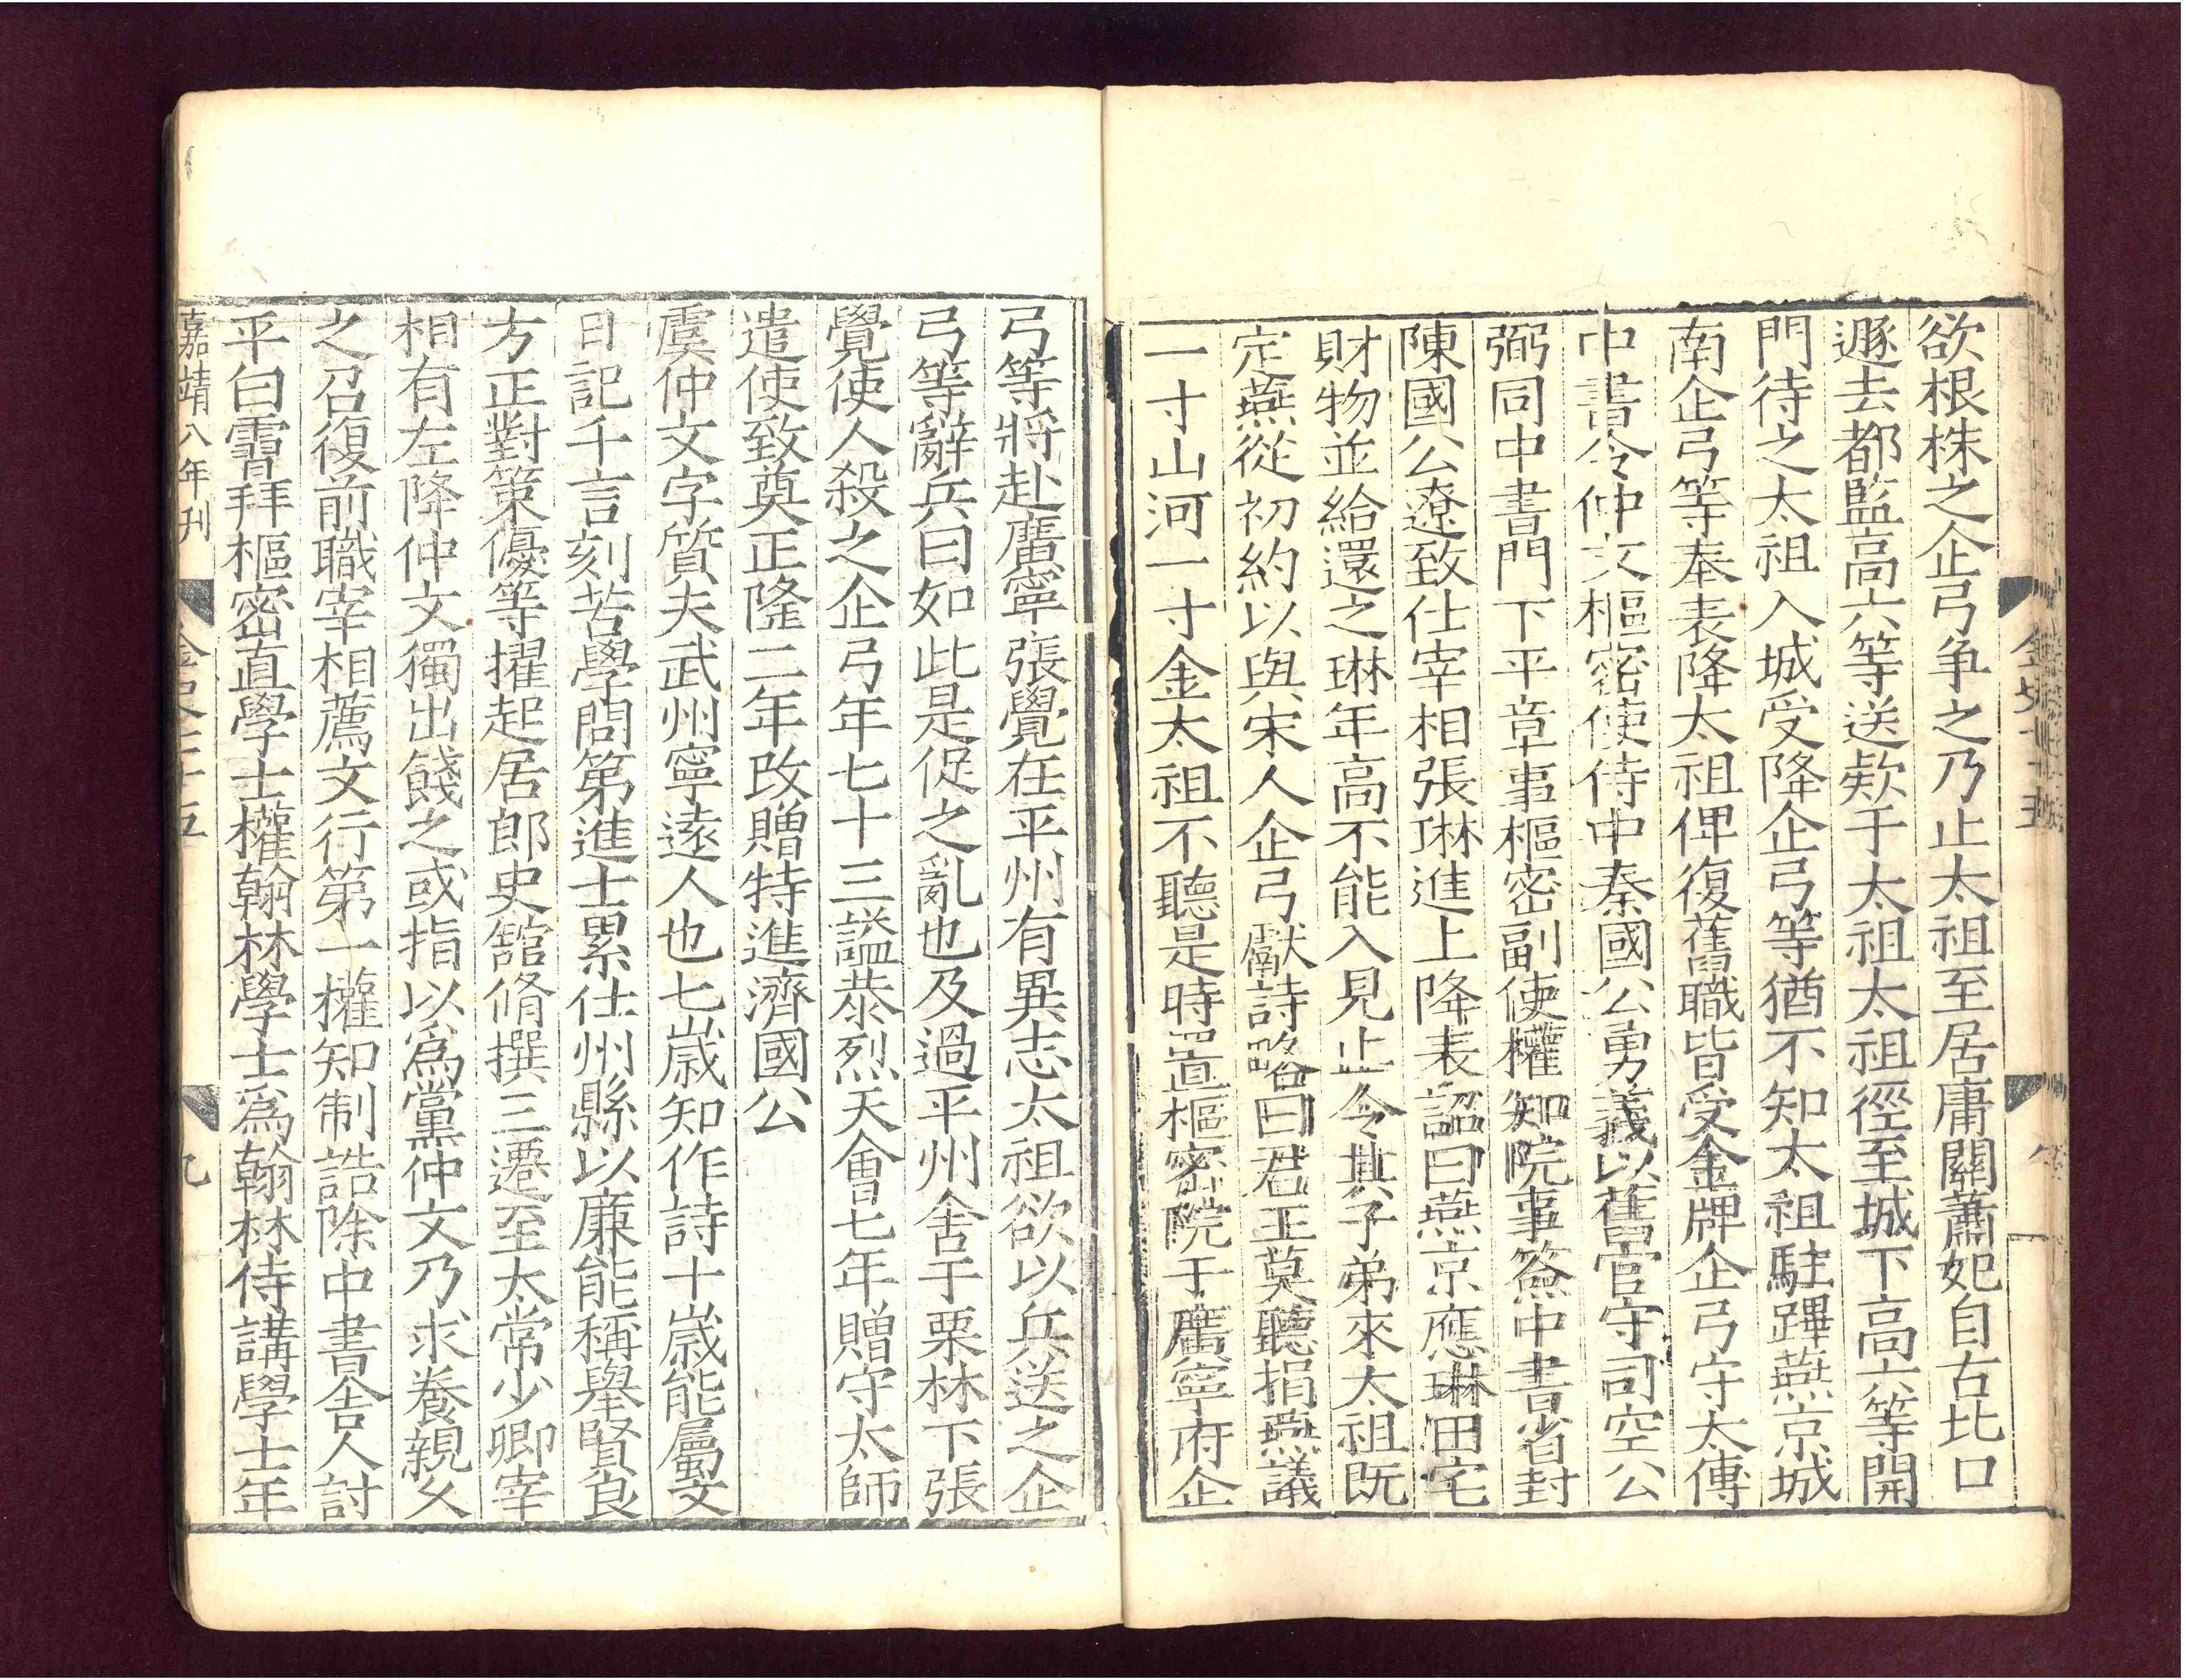 欲根株之企弓争之乃止太祖至居庸關蕭妃自古北口
遯去都監高六等送欵于太祖太祖徑至城下高六等開
門待之太祖入城受降企弓等猶不知太祖駐蹕燕京城
南企弓等奉表降太祖俾復舊職皆受金牌企弓守太傅
中書令仲文樞密使侍中秦國公勇義以舊官守司空公
弼同中書門下平章事樞密副使權知院事簽中書省封
陳國公遼致仕宰相張琳進上降表詔曰燕京應琳田宅
財物並給還之琳年高不能入見止令其子弟來太祖既
定燕從初約以與宋人企弓獻詩略曰君王莫聽捐燕議
一寸山河一寸金太祖不聽是時置樞密院于廣寧府企
弓等將赴廣寧張覺在平州有異志太祖欲以兵送之企
弓等辭兵曰如此是促之亂也及過平州舍于栗林下張
覺使人殺之企弓年七十三謚恭烈天會七年贈守太師
遣使致奠正隆二年改贈特進濟國公
虞仲文字質夫武州寧遠人也七歲知作詩十歲能屬文
日記千言刻苦學問第進士累仕州縣以廉能稱舉賢良
方正對策優等擢起居郎史舘脩撰三遷至太常少卿宰
相有左降仲文獨出餞之或指以爲黨仲文乃求養親久
之召復前職宰相薦文行第一權知制誥除中書舍人討
平白霫拜樞密直學士權翰林學士爲翰林侍講學士年
嘉靖八年刊
金史七十五
九